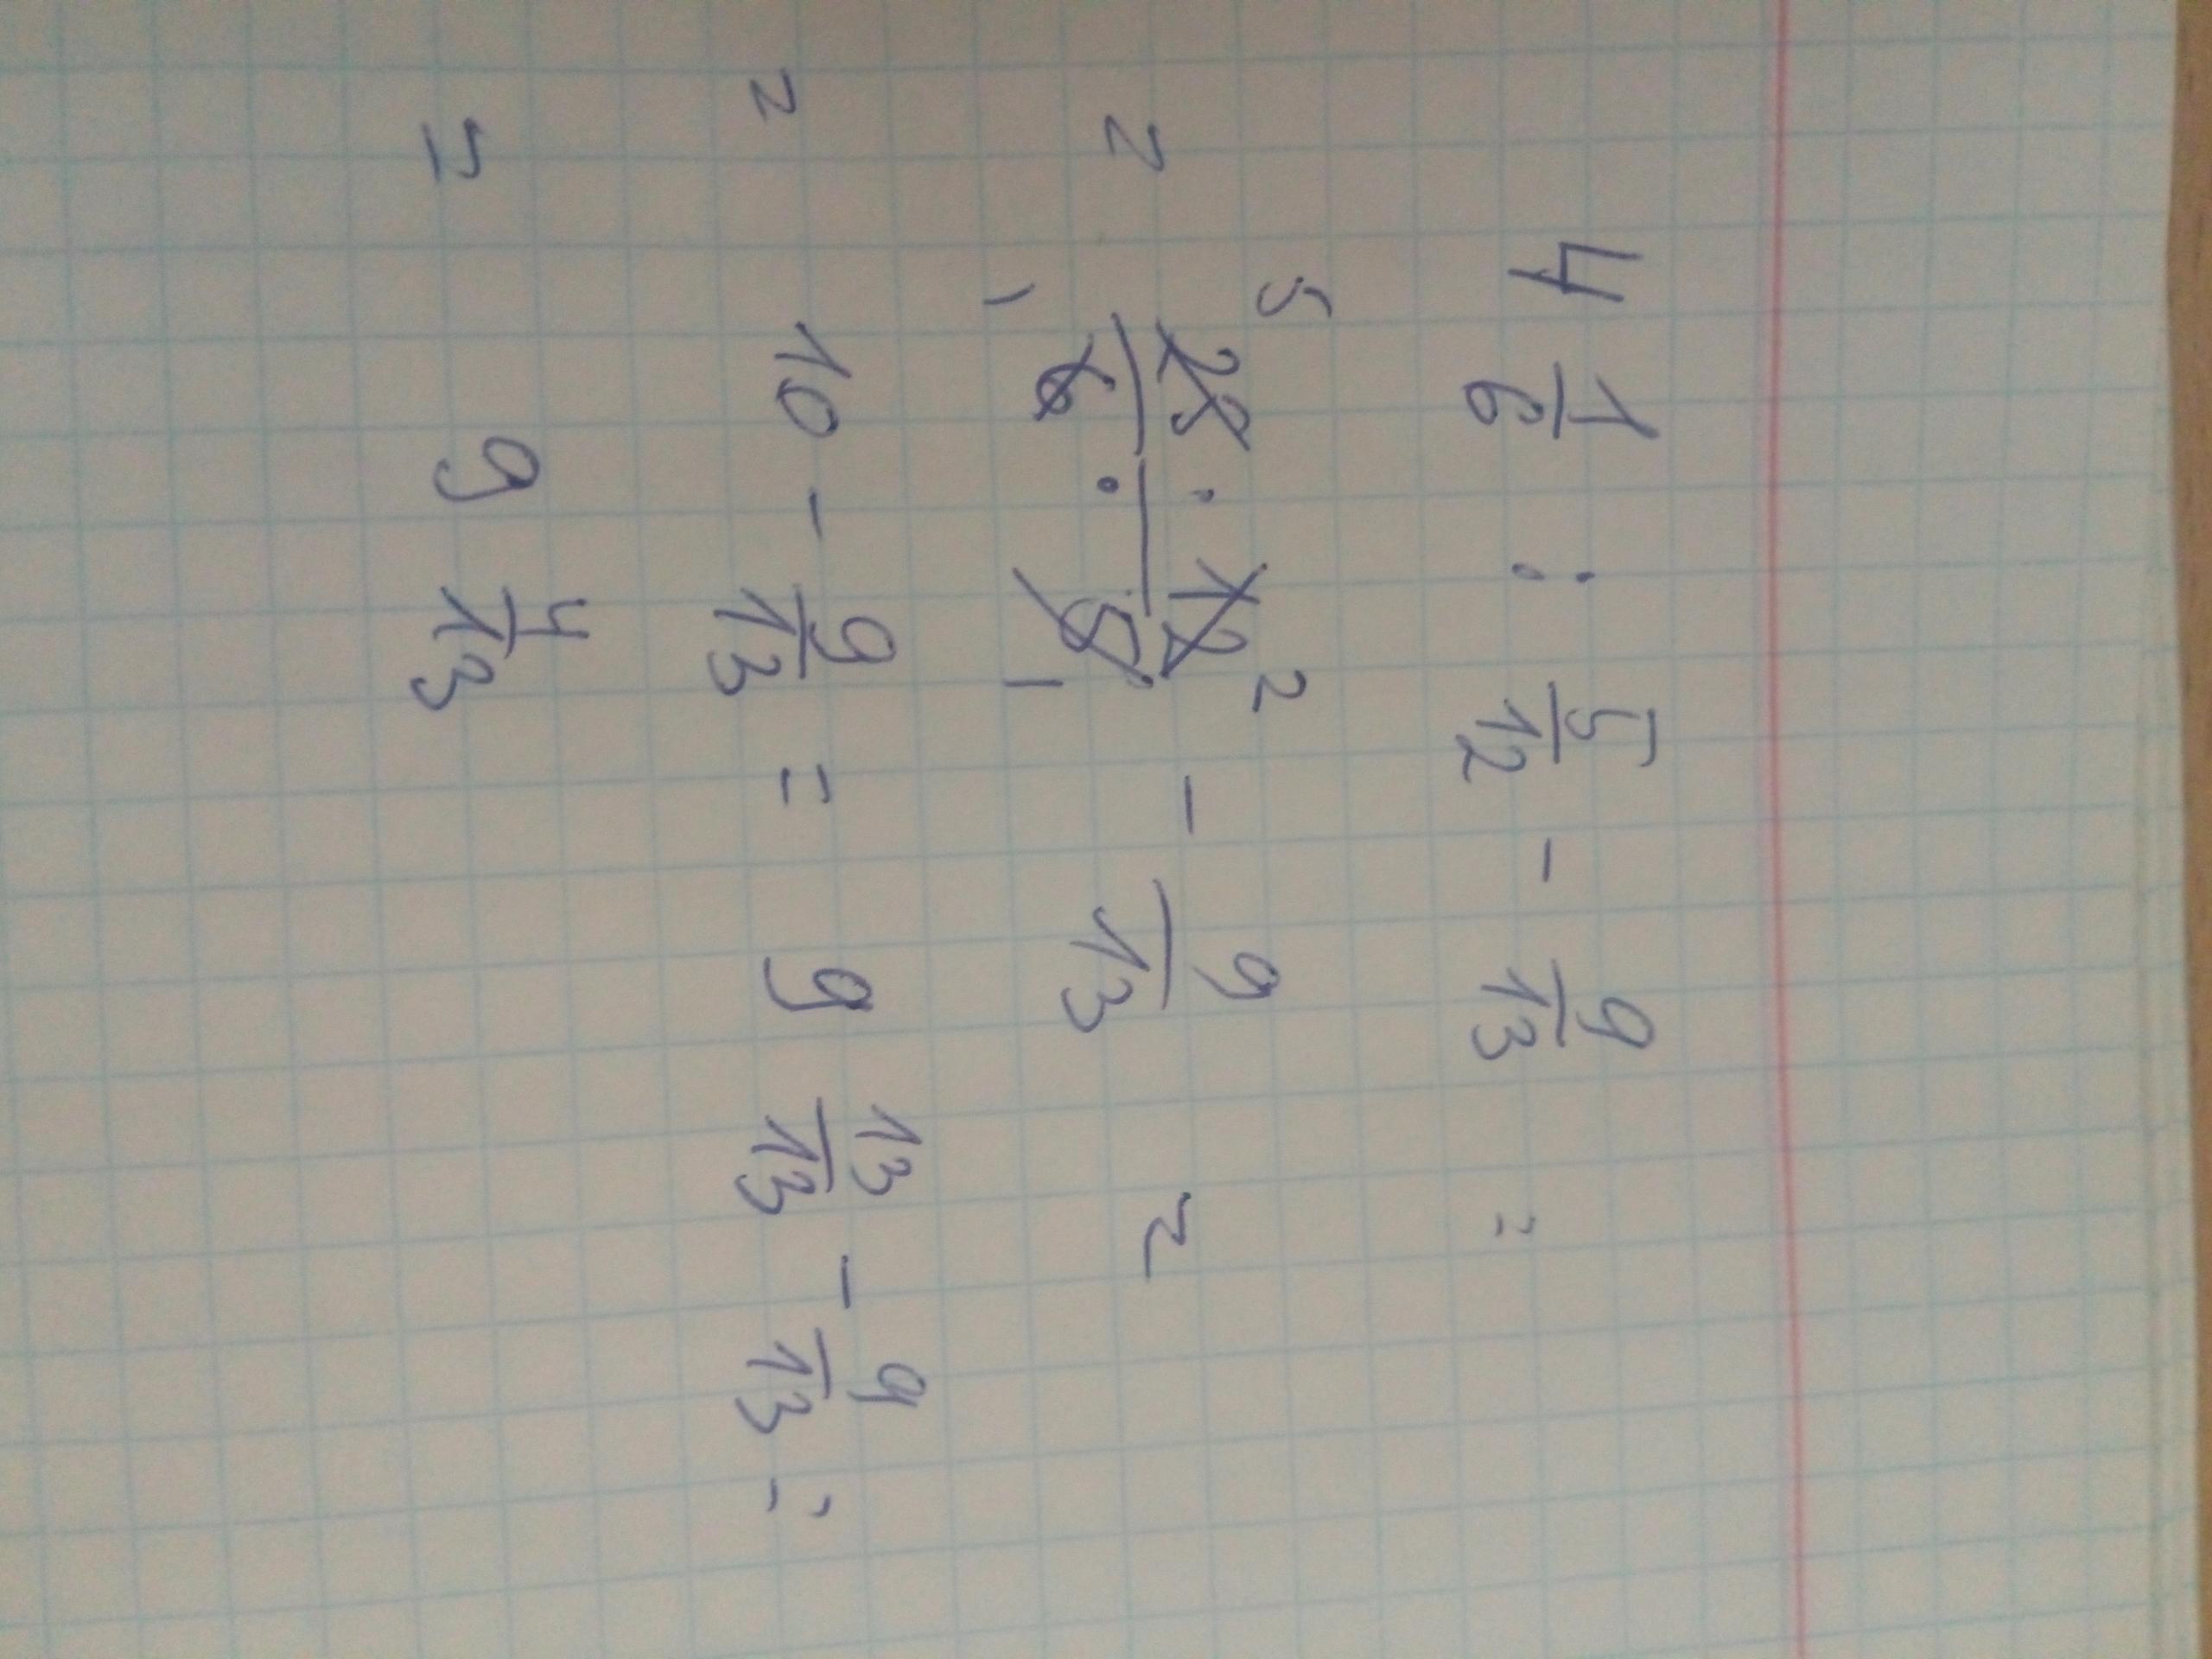 4 1/6 : 5/12 - 9/13 =
= 25 · 12 / 6 · 5 - 9/13 = 5 2 1 1
= 10 - 9/13 = 9 13/13 - 9/13 =
= 9 4/13